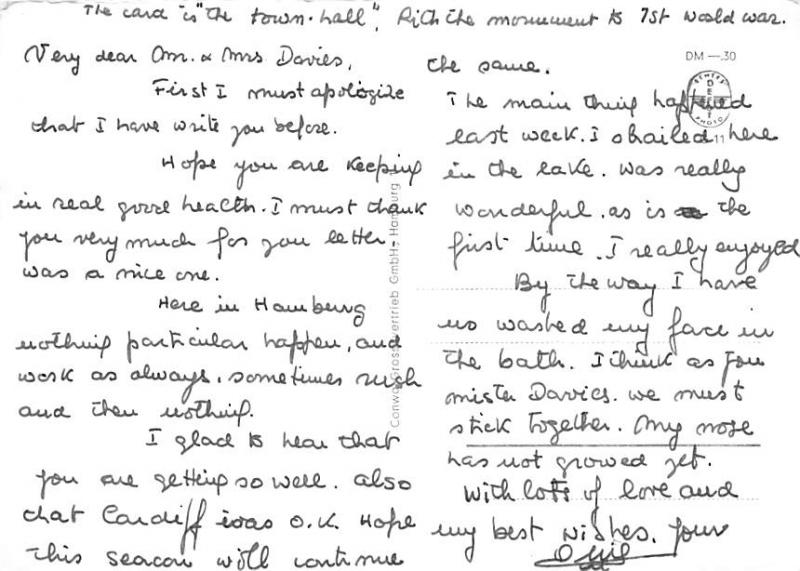 The card is "the town-hall", Rich the monument to 1st world war.
Very dear Mr. & Mrs Davies,
First I must apologize
that I have write you before.
Hope you are keeping
in real good health. I must thank
you very much for you letter.
was a nice one.
Here in Hamburg
nothing particular happen, and
work as always. sometimes rush
and then nothing.
I glad to hear that
you are getting so well. also
that Cardiff was O.K. Hope
this season will continue
the same.
The main thing happened
last week. I shailed here
in the lake. was really
wonderful. as is the
first time. I really enyoyed
By the way I have
no washed my face in
the bath. I think as you
mister Davies. we must
stick together. My nose
has not growed yet.
with lots of love and
my best wishes. your
DM —.30
SCHERS
PHOTO
11
Conway Grossvertrieb GmbH - Hamburg